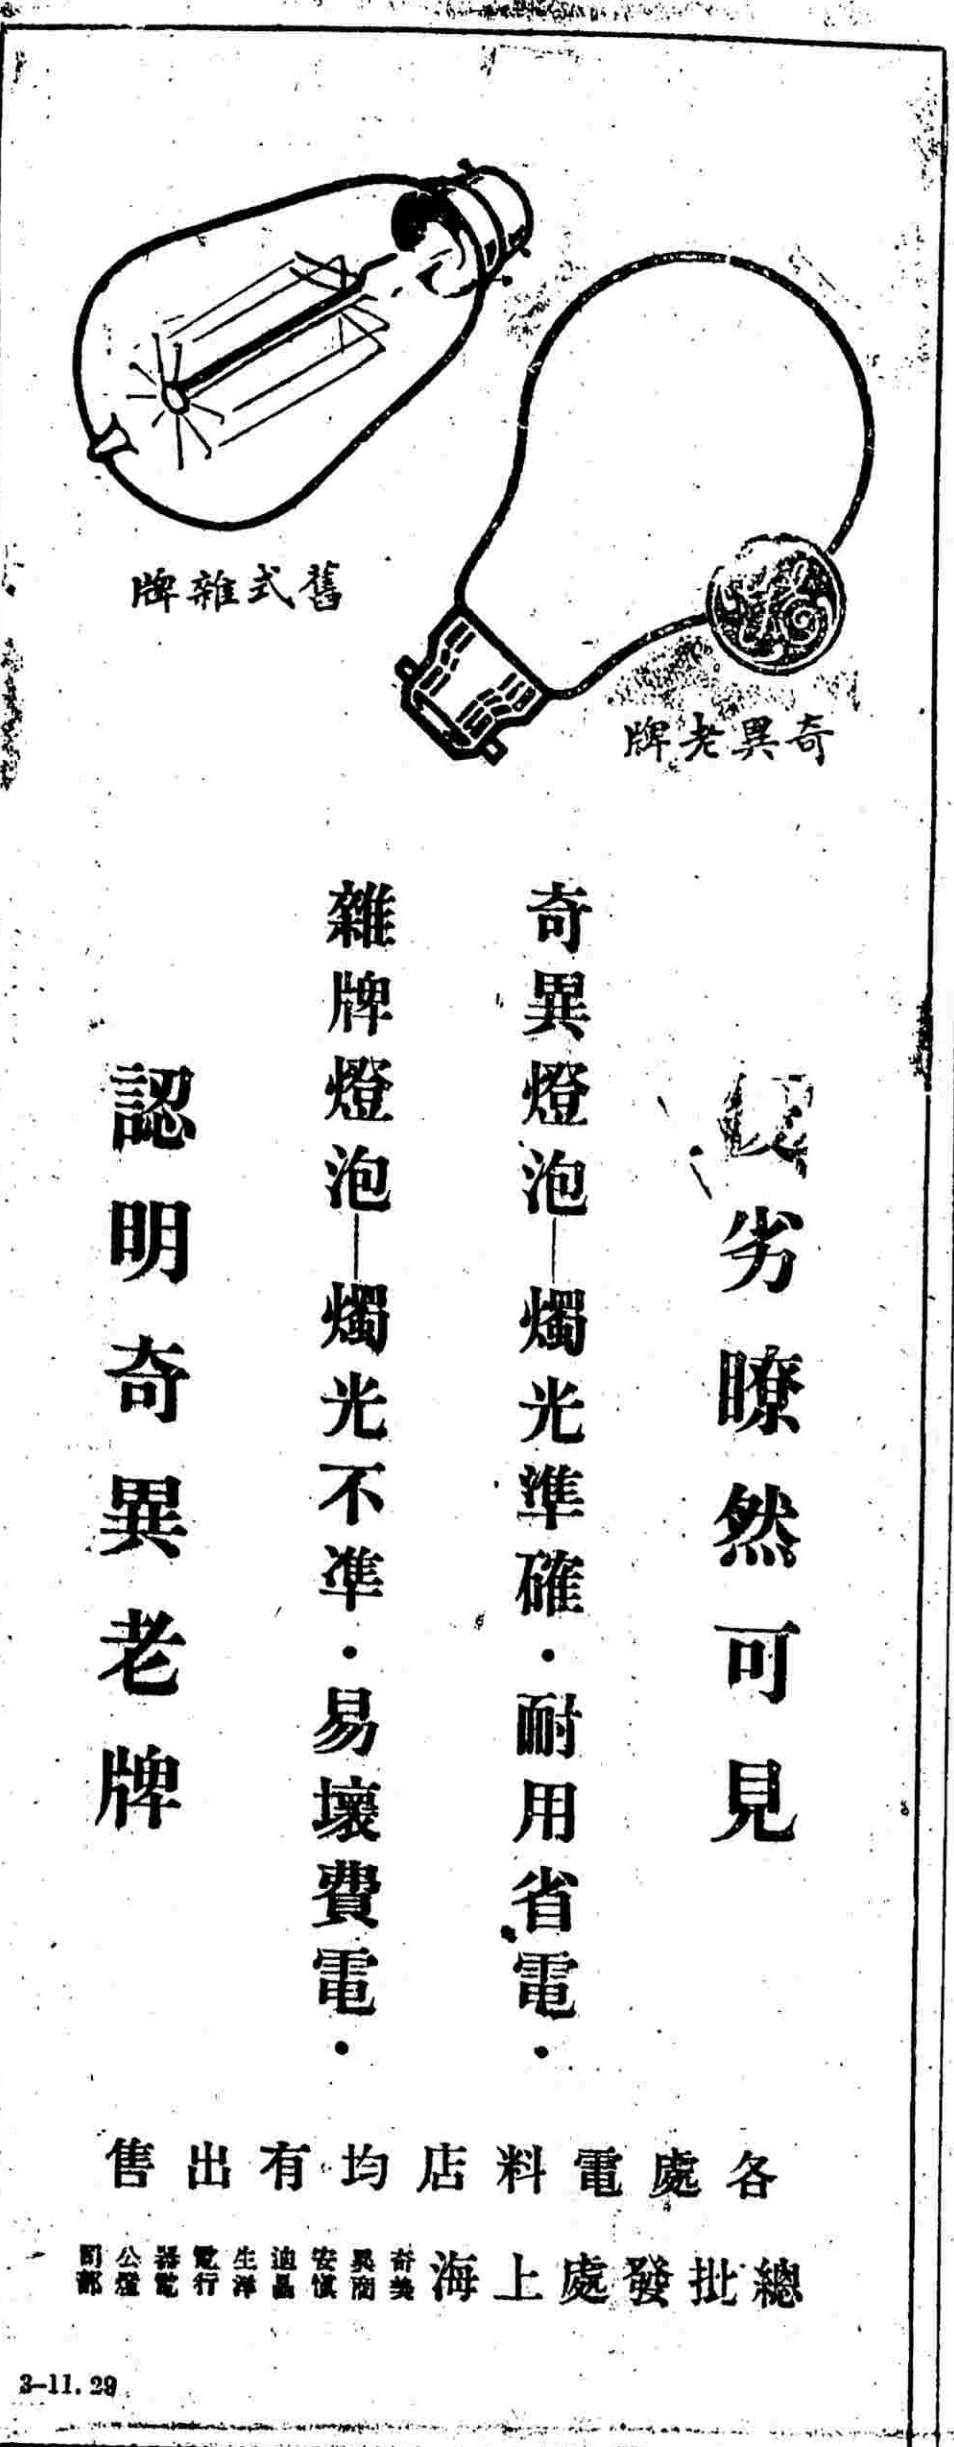 舊式雜牌
奇異老牌
劣瞭然可見
奇異燈泡—燭光準確・耐用省電・
雜牌燈泡—燭光不準・易壞費電・
認明奇異老牌
各處電料店均有出售
總批發處上海
奇異安迪生電器公司
美商慎昌洋行電燈部
3-11.29